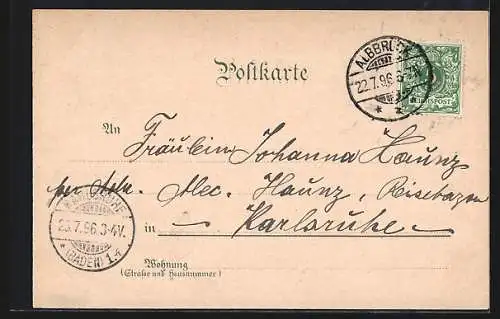 Postkarte
ALBBRUCK
22.7.96.
REICHSPOST
An Fräulein Johanna Haunz
per Adr. Alec. Haunz, Reisebazar
in Karlsruhe
KARLSRUHE
23.7.96.3-4V.
(BADEN) 1.
Wohnung
(Straße und Hausnummer)